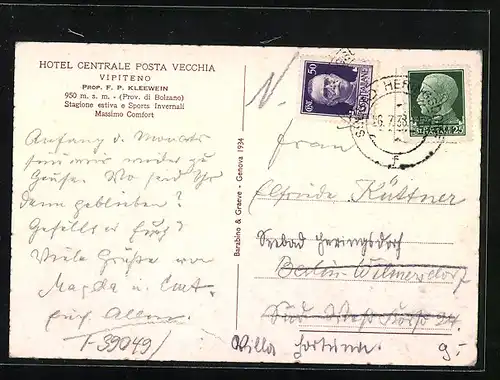 HOTEL CENTRALE POSTA VECCHIA
VIPITENO
PROP. F. P. KLEEWEIN
950 m. s. m. - (Prov. di Bolzano)
Stagione estiva e Sports Invernali
Massimo Comfort
Anfang d. Monats
sind wir wieder zu
Hause. Wo seid Ihr
denn geblieben?
Gefällt es Euch?
Viele Grüße von
Magda u.
T-39049/
Barabino & Graeve - Genova 1934
50
25
HERI
Frau
Elfriede Küttner
Seebad Heringsdorf
Berlin-Wilmersdorf
Villa Fortuna.
9.-